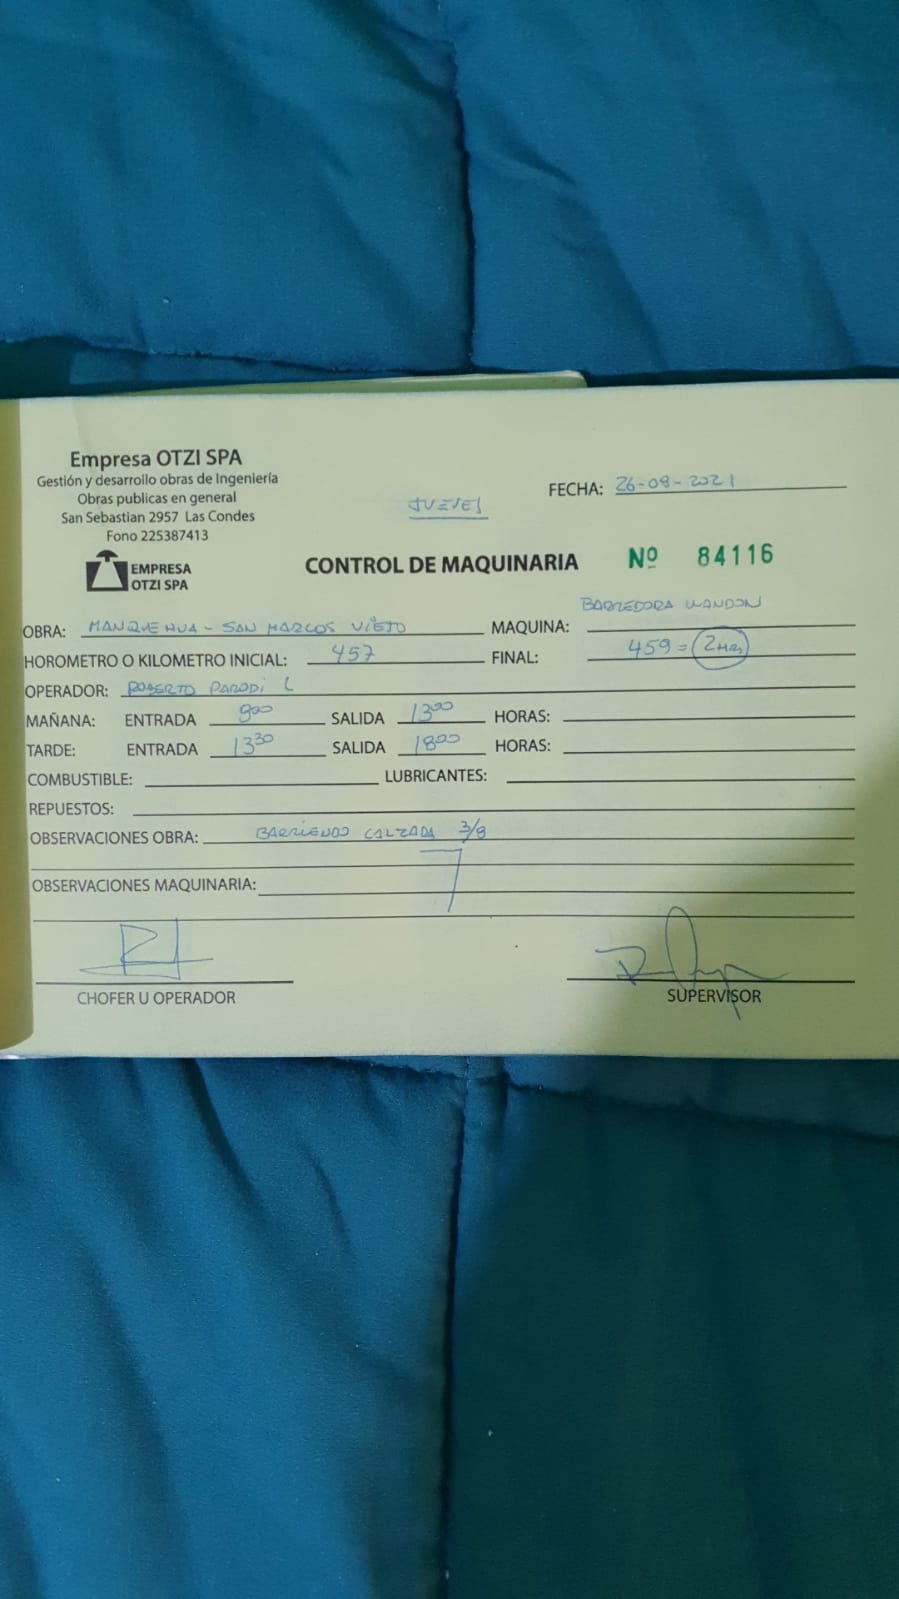 Empresa OTZI SPA
Gestión y desarrollo obras de Ingeniería
Obras publicas en general
San Sebastian 2957 Las Condes
Fono 225387413
EMPRESA
OTZI SPA
JUEVES
FECHA: 26-08-2021
CONTROL DE MAQUINARIA Nº 84116
OBRA: MANQUEHUA - SAN MARCOS VIEJO MAQUINA: BARREDORA WANDON
HOROMETRO O KILOMETRO INICIAL: 457 FINAL: 459 = 2 HRS
OPERADOR: ROBERTO PARODI L
MAÑANA: ENTRADA 900 SALIDA 1300 HORAS:
TARDE: ENTRADA 1330 SALIDA 1800 HORAS:
COMBUSTIBLE: LUBRICANTES:
REPUESTOS:
OBSERVACIONES OBRA: BARRIENDO CALZADA 3/8
OBSERVACIONES MAQUINARIA:
CHOFER U OPERADOR SUPERVISOR